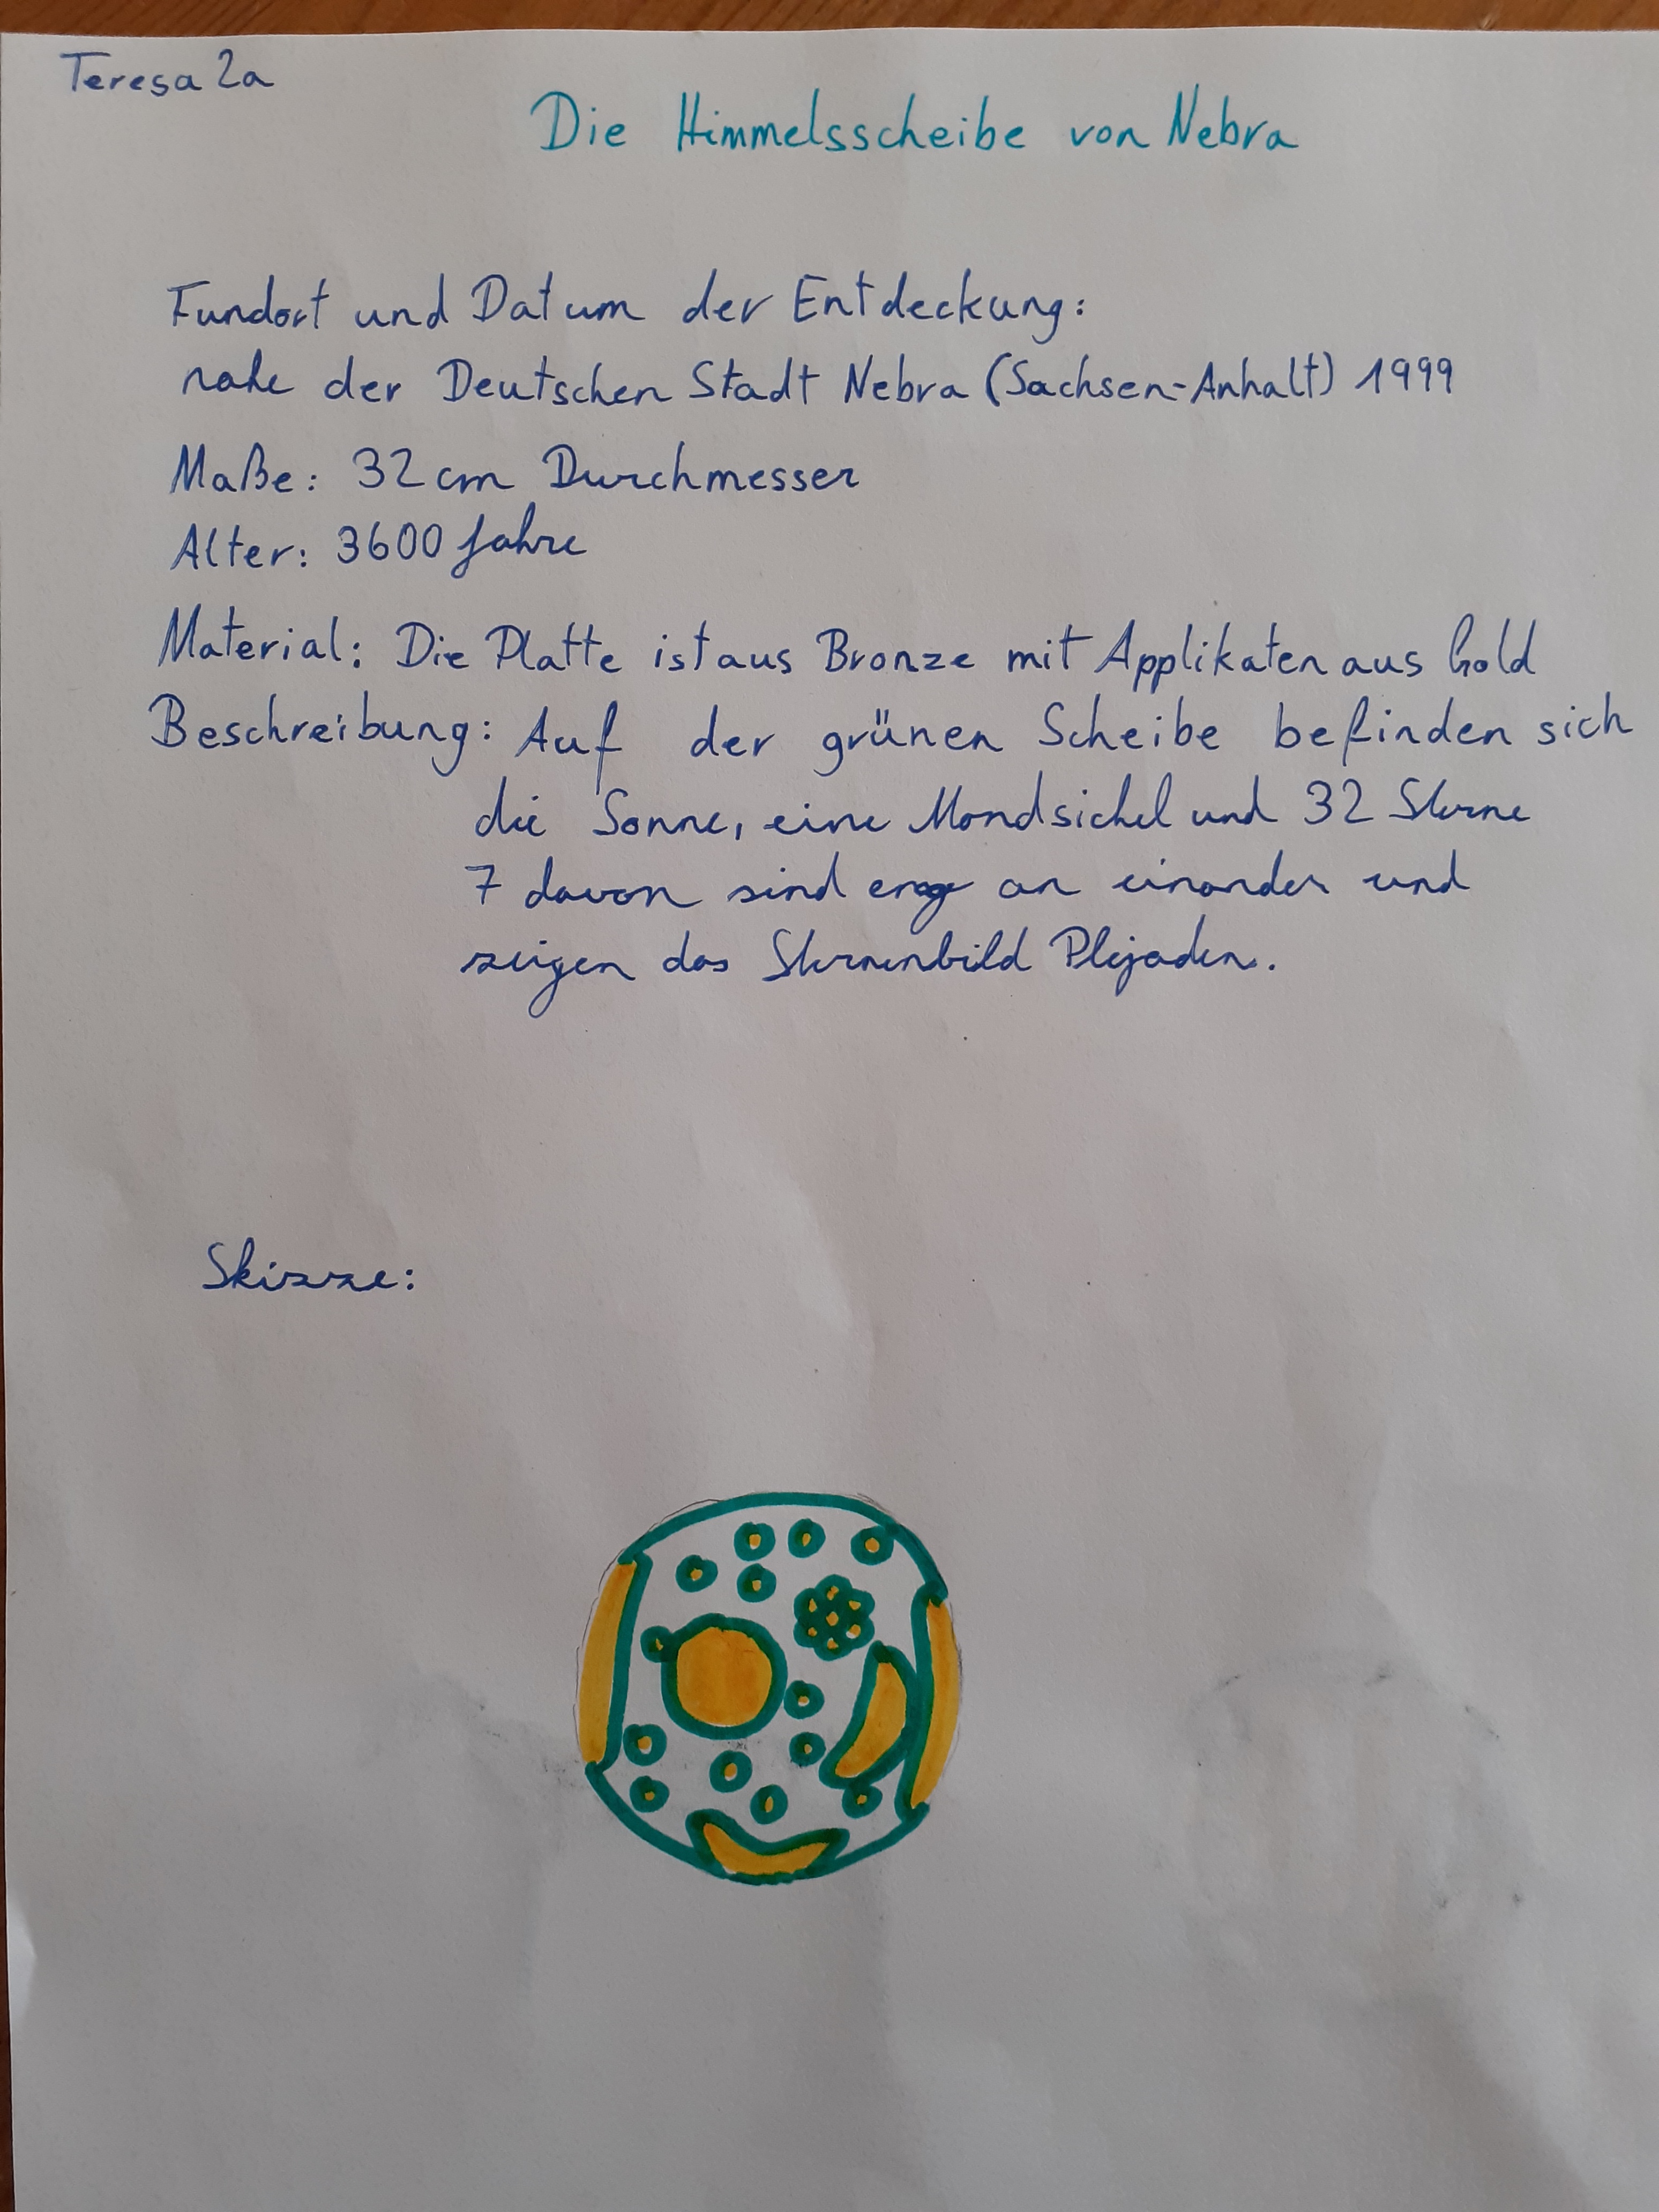 Teresa 2a
Die Himmelsscheibe von Nebra
Fundort und Datum der Entdeckung:
nahe der Deutschen Stadt Nebra (Sachsen-Anhalt) 1999
Maße: 32 cm Durchmesser
Alter: 3600 Jahre
Material: Die Platte ist aus Bronze mit Applikaten aus Gold
Beschreibung: Auf der grünen Scheibe befinden sich
die Sonne, eine Mondsichel und 32 Sterne
7 davon sind eng an einander und
zeigen das Sternenbild Plejaden.
Skizze: